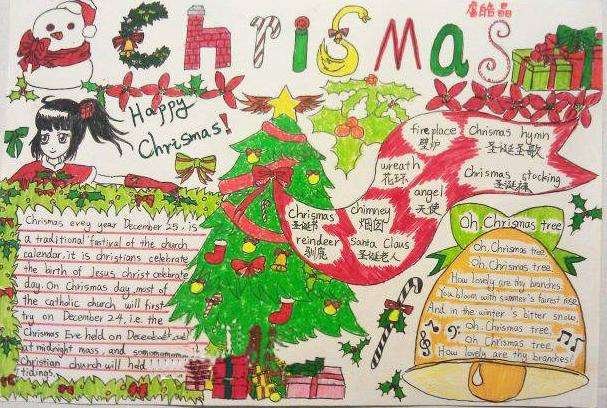 ChriSMaS
Happy
Chrismas!
fireplace
壁炉
Chrismas hymn
圣诞圣歌
wreath
花环
Chrismas stocking
圣诞袜
angel
天使
Chrismas
圣诞书
chimney
烟囱
reindeer
驯鹿
Santa Claus
圣诞老人
Chrismas, evey year December 25, is
a traditional fastival of the church
calendar, it is christians celebrate
the birth of Jesus christ celebrate
day. On Chrismas day, most of
the catholic church will first
try on December 24, i.e. the
Chrismas Eve held on
at midnight mass, and
Christian church will held
tidings.
Oh Chrismas tree
Oh, Chrismas tree.
Oh Chrismas tree.
How lovely are thy branches
You bloom with summer's fairest rise
And in the winter's bitter snow,
Oh Chrismas tree.
Oh Chrismas tree.
How lovely are thy branches!